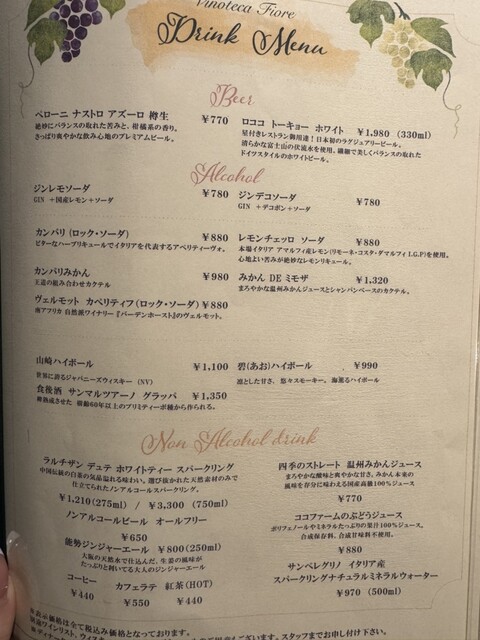 Vinoteca Fiore
Drink Menu
Beer
ペローニ ナストロ アズーロ 樽生 ¥770
絶妙にバランスの取れた苦みと、柑橘系の香り。
さっぱり爽やかな飲み心地のプレミアムビール。
ロココ トーキョー ホワイト ¥1,980 (330ml)
星付きレストラン御用達！日本初のラグジュアリービール。
清らかな富士山の伏流水を使用。繊細で美しくバランスの取れた
ドイツスタイルのホワイトビール。
Alcohol
ジンレモソーダ ¥780
GIN ＋国産レモン＋ソーダ
ジンデコソーダ ¥780
GIN ＋デコポン＋ソーダ
カンパリ (ロック・ソーダ) ¥880
ビターなハーブリキュールでイタリアを代表するアペリティーヴォ。
レモンチェッロ ソーダ ¥880
本場イタリア アマルフィ産レモン(リモーネ・コスタ・ダマルフィ I.G.P)を使用。
心地よい苦みが絶妙なレモンリキュール。
カンパリみかん ¥980
王道の組み合わせカクテル
みかん DE ミモザ ¥1,320
まろやかな温州みかんジュースとシャンパンベースのカクテル。
ヴェルモット カペリティフ(ロック・ソーダ) ¥880
南アフリカ 自然派ワイナリー『バーデンホースト』のヴェルモット。
山崎ハイボール ¥1,100
世界に誇るジャパニーズウィスキー (NV)
碧(あお)ハイボール ¥990
凛とした甘さ、悠々スモーキー。海薫るハイボール
食後酒 サンマルツアーノ グラッパ ¥1,350
樽熟成させた 樹齢60年以上のプリミティーボ種から作られる。
Non Alcohol drink
ラルチザン デュテ ホワイトティー スパークリング
中国伝統の白茶の気品溢れる味わい。選び抜かれた天然素材のみで
仕立てられたノンアルコールスパークリング。
¥1,210(275ml) / ¥3,300 (750ml)
ノンアルコールビール オールフリー
¥650
能勢ジンジャーエール ¥800(250ml)
大阪の天然水で仕込んだ、生姜の風味が
たっぷりと利いてる大人のジンジャーエール
コーヒー カフェラテ 紅茶(HOT)
¥440 ¥550 ¥440
四季のストレート 温州みかんジュース
まろやかな酸味と爽やかな甘さ、みかん本来の
風味を存分に味わえる国産高級100％ジュース
¥770
ココファームのぶどうジュース
ポリフェノールやミネラルたっぷりの果汁100％ジュース。
合成保存料、合成甘味料不使用。
¥880
サンペレグリノ イタリア産
スパークリングナチュラルミネラルウォーター
¥970 (500ml)
※表示価格は全て税込み価格となっております。